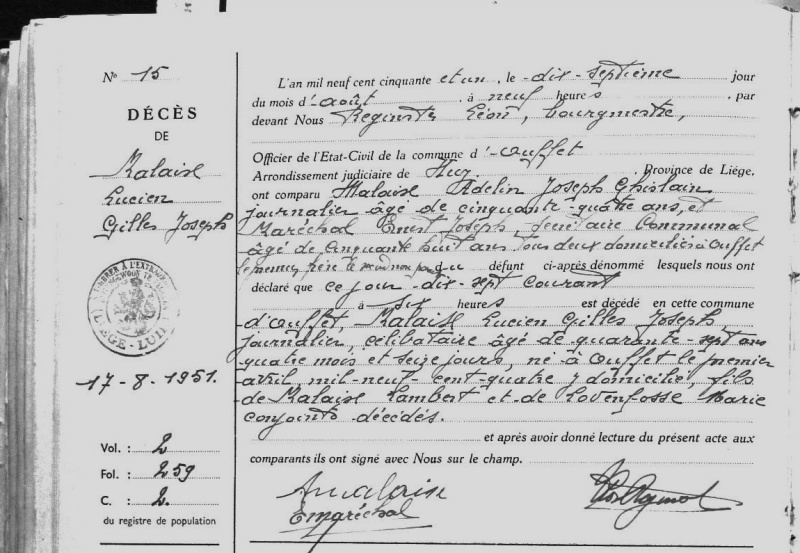 N° 15
DÉCÈS
DE
Malaise
Lucien
Gilles Joseph
17-8-1951.
Vol. : 2
Fol. : 259
C. : 2.
du registre de population
L'an mil neuf cent cinquante et un, le dix-septième jour
du mois d'août, à neuf heures, par
devant Nous Léon, bourgmestre,
Officier de l'Etat-Civil de la commune d'Ouffet
Arrondissement judiciaire de Huy, Province de Liége,
ont comparu Malaise Adelin Joseph Ghislain
journalier âgé de cinquante-quatre ans, et
Maréchal Ernest Joseph, secrétaire Communal
âgé de cinquante huit ans tous deux domiciliés à Ouffet
le premier frère le second non parent du défunt ci-après dénommé lesquels nous ont
déclaré que ce jour dix-sept courant
à six heures est décédé en cette commune
d'Ouffet, Malaise Lucien Gilles Joseph
journalier, célibataire âgé de quarante-sept ans
quatre mois et seize jours, né à Ouffet le premier
avril mil-neuf-cent-quatre y domicilié, fils
de Malaise Lambert et de Lovenfosse Marie
conjoints décédés.
et après avoir donné lecture du présent acte aux
comparants ils ont signé avec Nous sur le champ.
AMalaise
EMaréchal